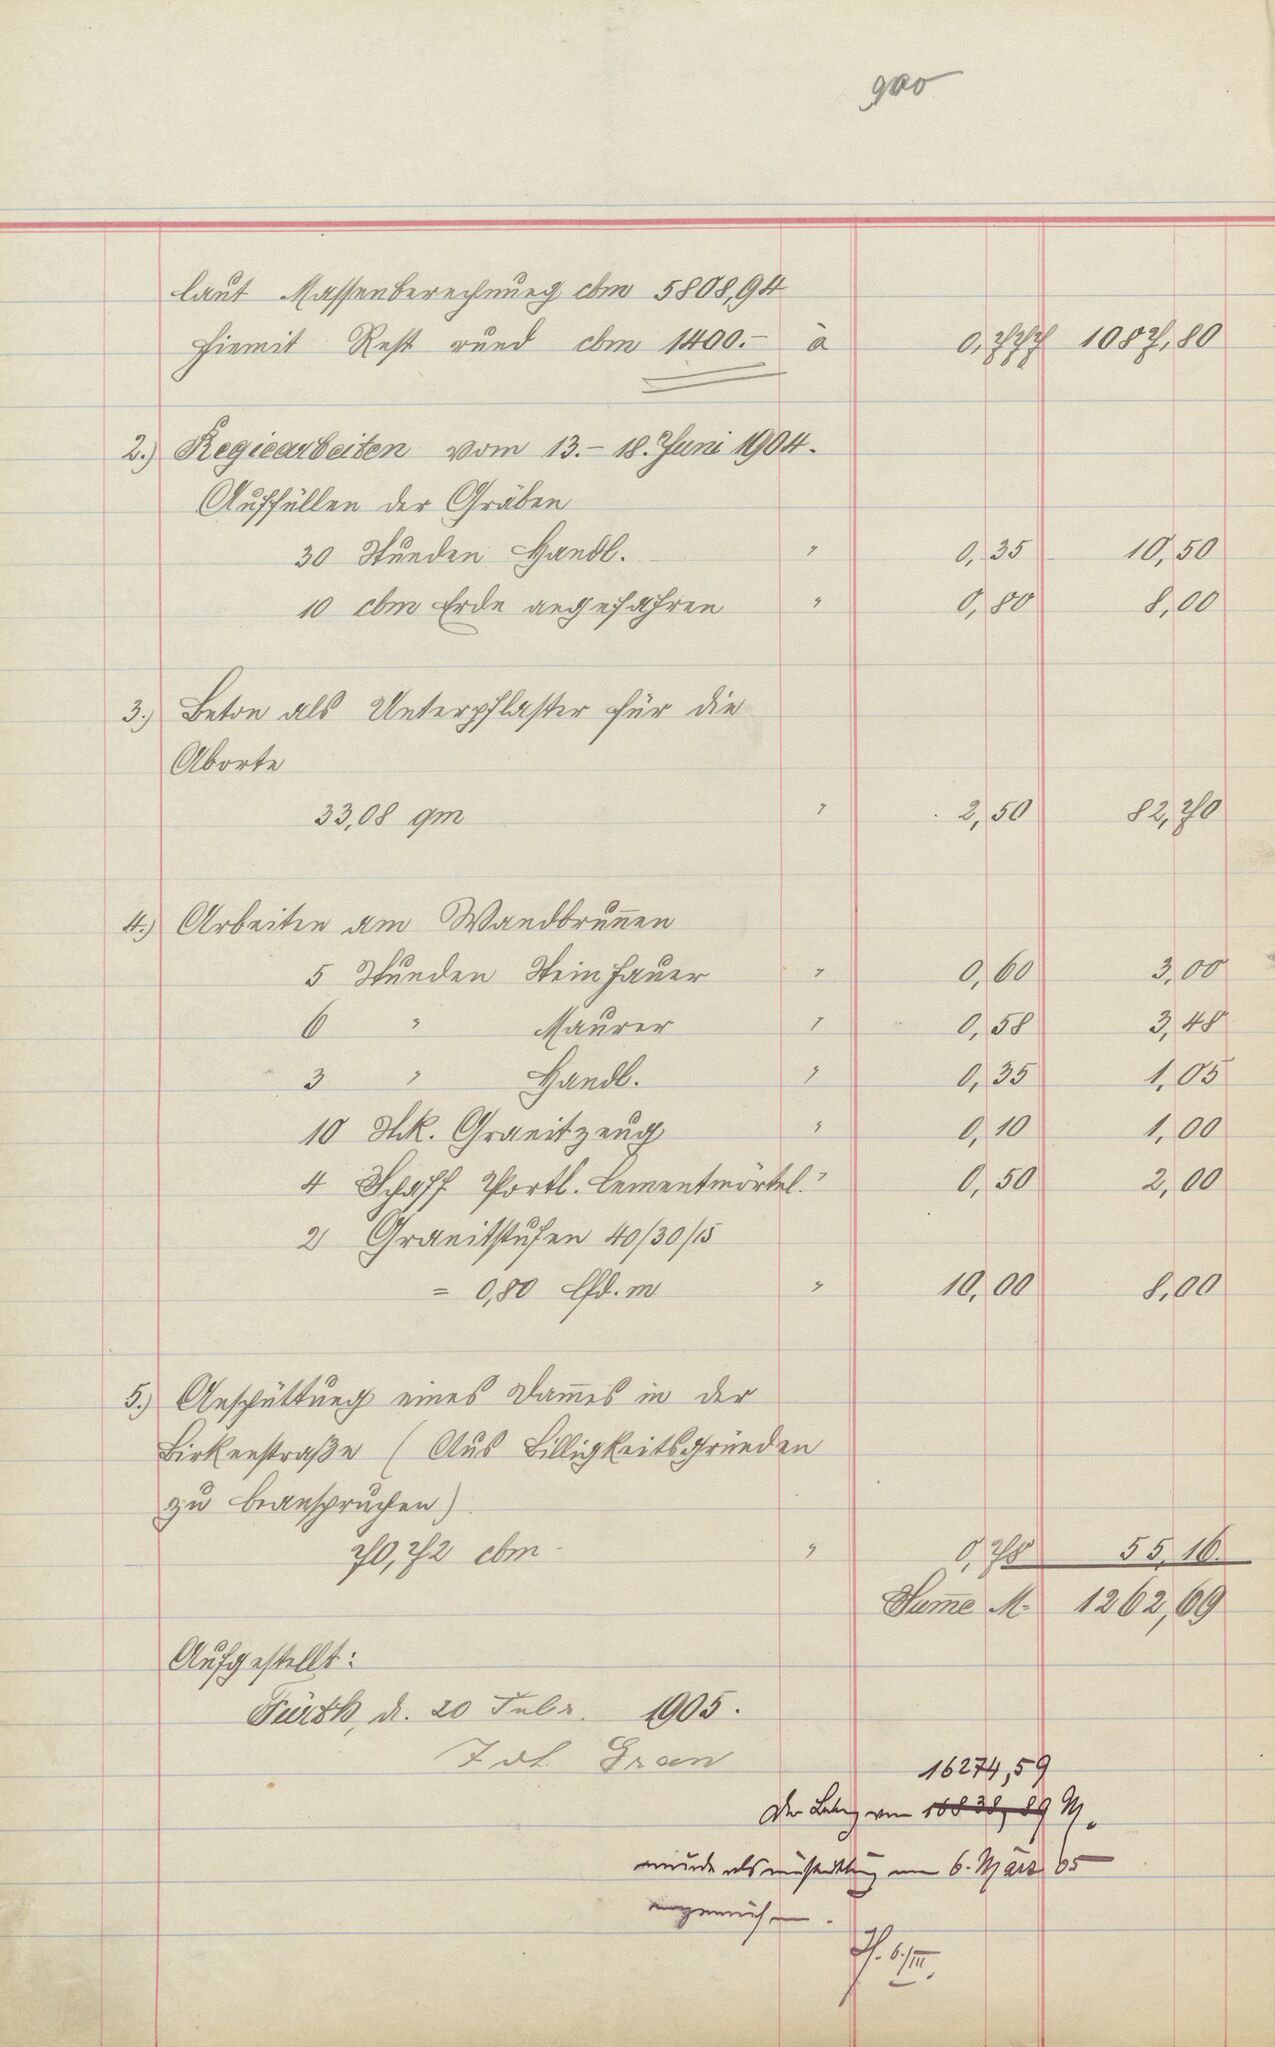 laut Massenberechnung cbm 5808,94
hiemit Rest rund cbm 1400.- à 0,777 1087,80
2.) Regiearbeiten vom 13.- 18. Juni 1904.
Auffüllen der Gräben
30 Stunden Handl. " 0,35 10,50
10 cbm Erde angefahren " 0,80 8,00
3.) Beton als Unterpflaster für die
Aborte
33,08 qm " 2,50 82,70
4.) Arbeiten am Wandbrunnen
5 Stunden Steinhauer " 0,60 3,00
6 " Maurer " 0,58 3,48
3 " Handl. " 0,35 1,05
10 Stk. Granitzeug " 0,10 1,00
4 Schaff Portl. Cementmörtel. " 0,50 2,00
2 Granitstufen 40/30/15
= 0,80 lfd. m " 10,00 8,00
5.) Anschüttung eines Dammes in der
Birkenstraße (Aus Billigkeitsgründen
zu beanspruchen)
70,72 cbm " 0,78 55,16.
Summe M. 1262,69
Aufgestellt:
Fürth, d. 20 Febr. 1905.
Gran
16274,59
Der Betrag von 16838,89 M.
wurde als am 6. März 05
6./III.